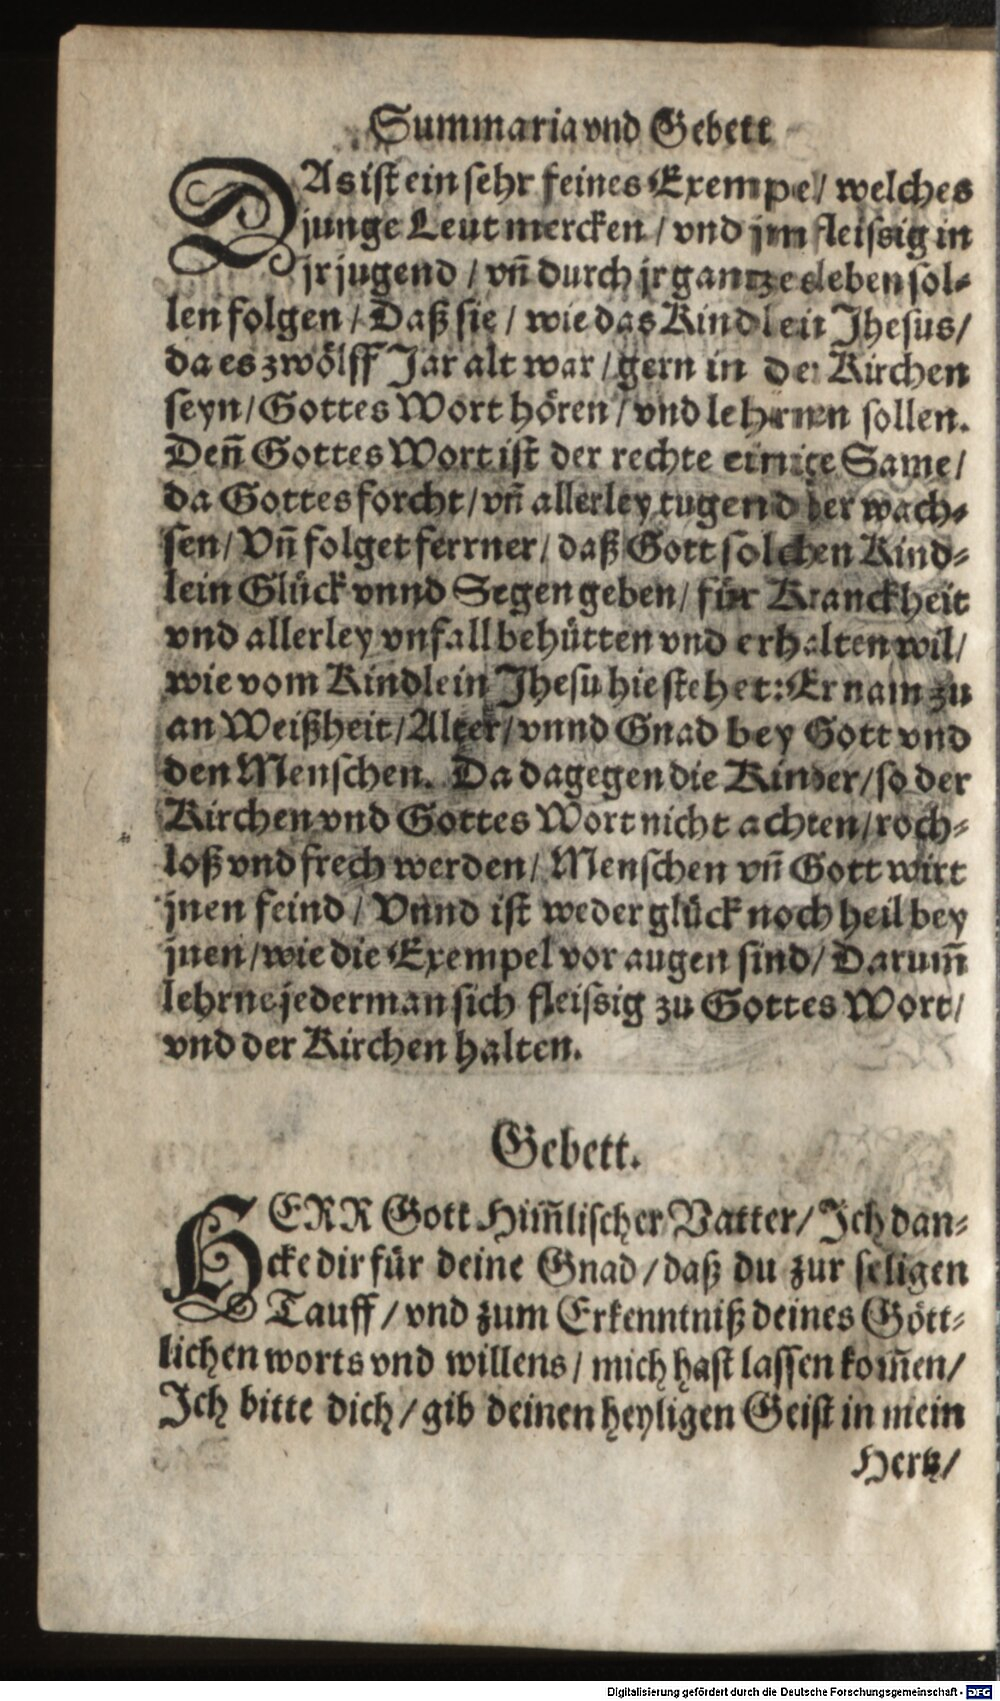 Summaria vnd Gebett
DAs ist ein sehr feines Exempel/ welches
junge Leut mercken / vnd jm fleissig in
jr jugend / vñ durch jr gantzes leben sol-
len folgen / Daß sie / wie das Kindlein Jhesus/
da es zwölff Jar alt war / gern in der Kirchen
seyn/ Gottes Wort hören / vnd lehrnen sollen.
Deñ Gottes Wort ist der rechte einige Same/
da Gottes forcht/ vñ allerley tugend her wach-
sen/ Vñ folget ferrner/ daß Gott solchen Kind-
lein Glück vnnd Segen geben/ für Kranckheit
vnd allerley vnfall behütten vnd erhalten wil/
wie vom Kindlein Jhesu hie stehet: Er nam zu
an Weißheit/ Alter/ vnnd Gnad bey Gott vnd
den Menschen. Da dagegen die Kinder/ so der
Kirchen vnd Gottes Wort nicht achten/ roch-
loß vnd frech werden/ Menschen vñ Gott wirt
jnen feind / Vnnd ist weder glück noch heil bey
jnen/ wie die Exempel vor augen sind/ Darum̃
lehrne jederman sich fleissig zu Gottes Wort/
vnd der Kirchen halten.
Gebett.
HERR Gott Him̃lischer Vatter/ Ich dan-
cke dir für deine Gnad / daß du zur seligen
Tauff / vnd zum Erkenntniß deines Gött-
lichen worts vnd willens / mich hast lassen kom̃en/
Ich bitte dich/ gib deinen heyligen Geist in mein
Hertz/
Digitalisierung gefördert durch die Deutsche Forschungsgemeinschaft - DFG